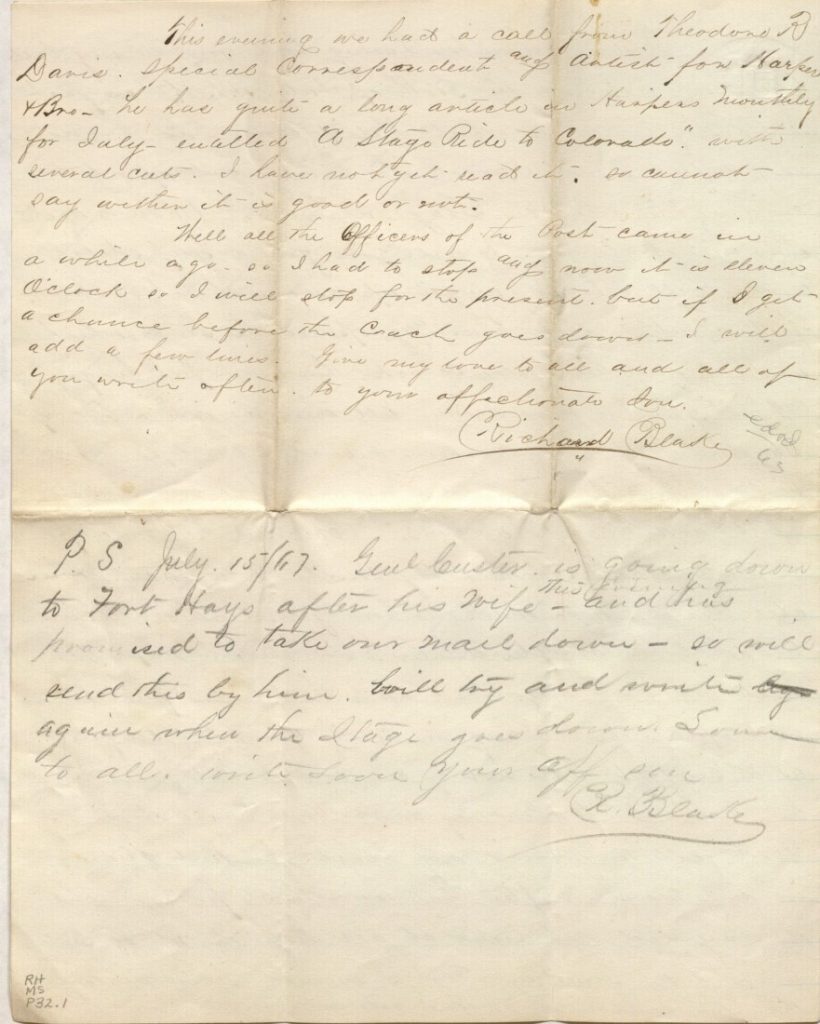 This evening we had a call from Theodore R
Davis. Special Correspondent and Artist for Harper
& Bro - he has quite a long article in Harpers Monthly
for July - entitled "A Stage Ride to Colorado". with
several cuts. I have not yet read it. so cannot
say wether it is good or not.
Well all the Officers of the Post came in
a while ago. so I had to stop and now it is eleven
O'clock so I will stop for the present. but if I get
a chance before the Coach goes down - I will
add a few lines. Give my love to all and all of
you write often. to your affectionate Son.
Richard Blake
63
P.S July. 15/67. Genl Custer is going down
to Fort Hays after his wife - this evening and has
promised to take our mail down - so will
send this by him. Will try and write
again when the Stage goes down. Love
to all. write soon Your aff son
R. Blake
RH
MS
P32.1